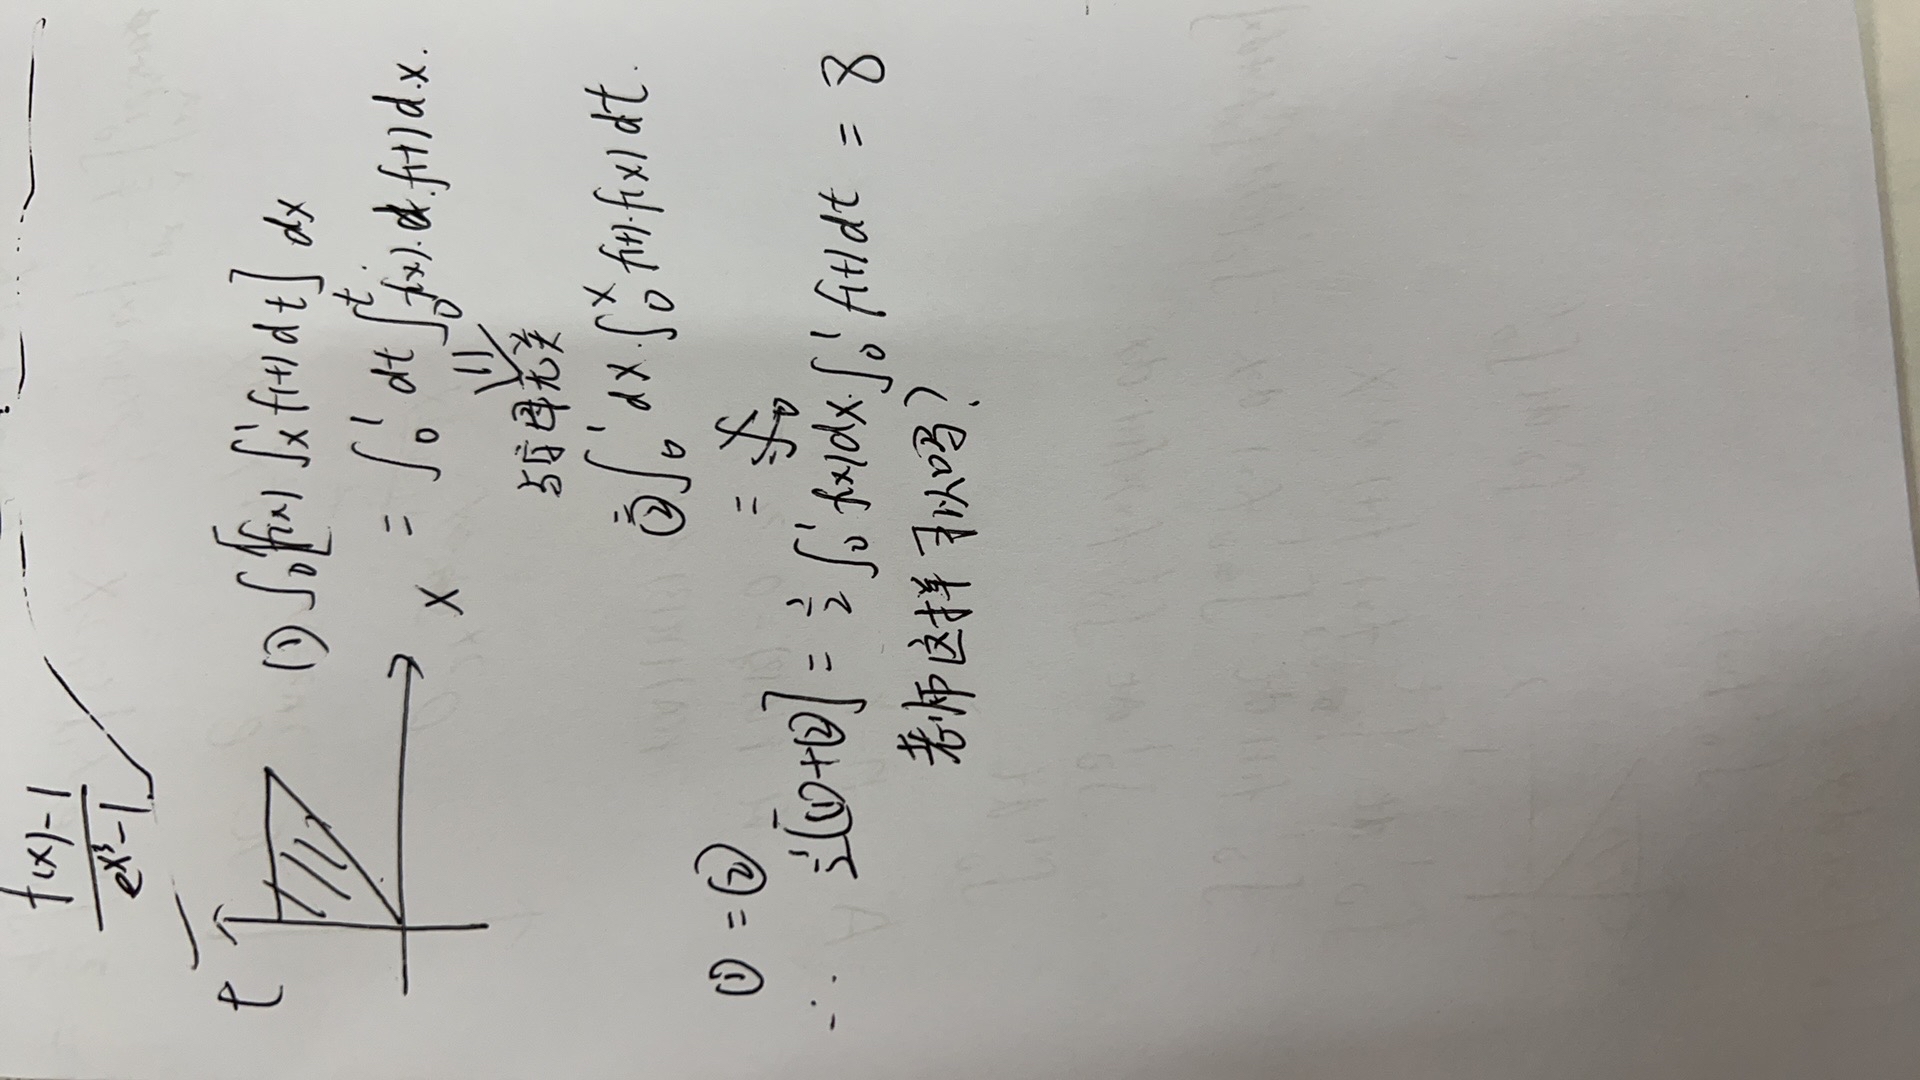 f(x)-1
e^{x^3}-1
t
x
① ∫₀¹[f(x) ∫ₓ¹ f(t)dt] dx
= ∫₀¹ dt ∫₀ᵗ f(x)·f(t)dx.
=
与字母无关
② ∫₀¹ dx·∫₀ˣ f(t)·f(x)dt.
① = ②
=
∴ ½[①+②] = ½ ∫₀¹ f(x)dx·∫₀¹ f(t)dt = 8
老师这样可以吗?